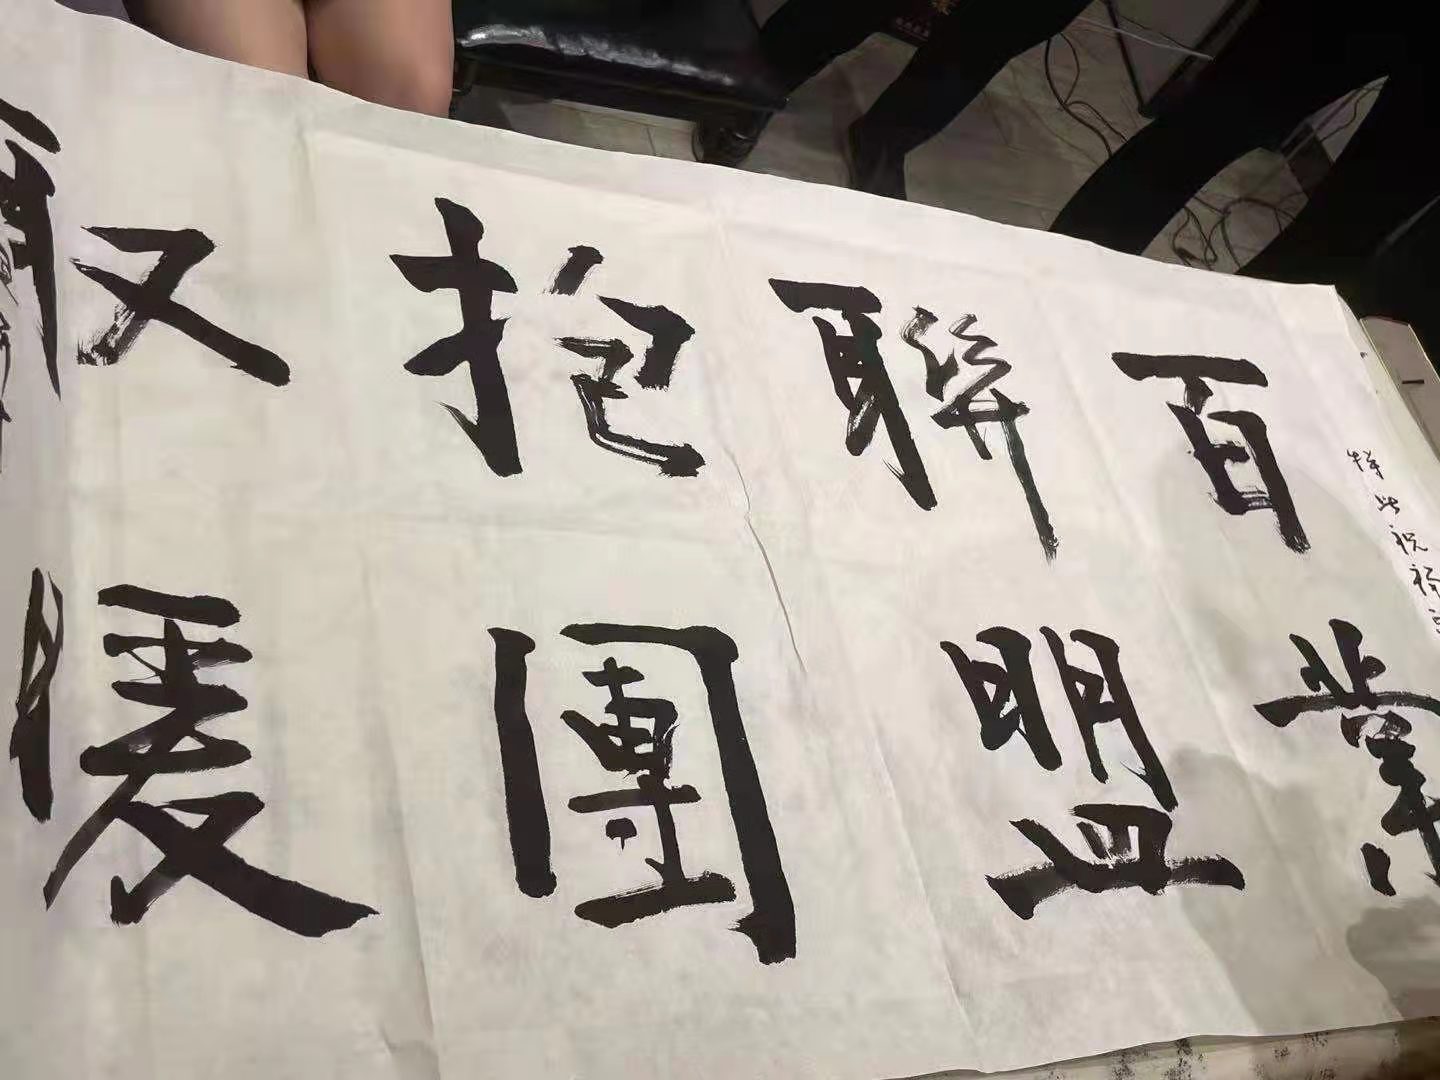 特此祝福
百業
聯盟
抱團
取暖